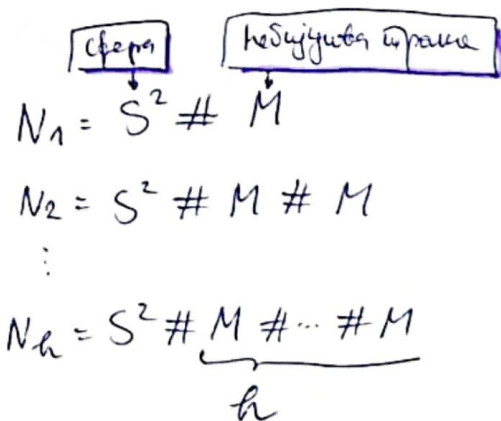 сфера Мебијусова трака
N₁ = S² # M
N₂ = S² # M # M
⋮
Nₕ = S² # M # ··· # M
h